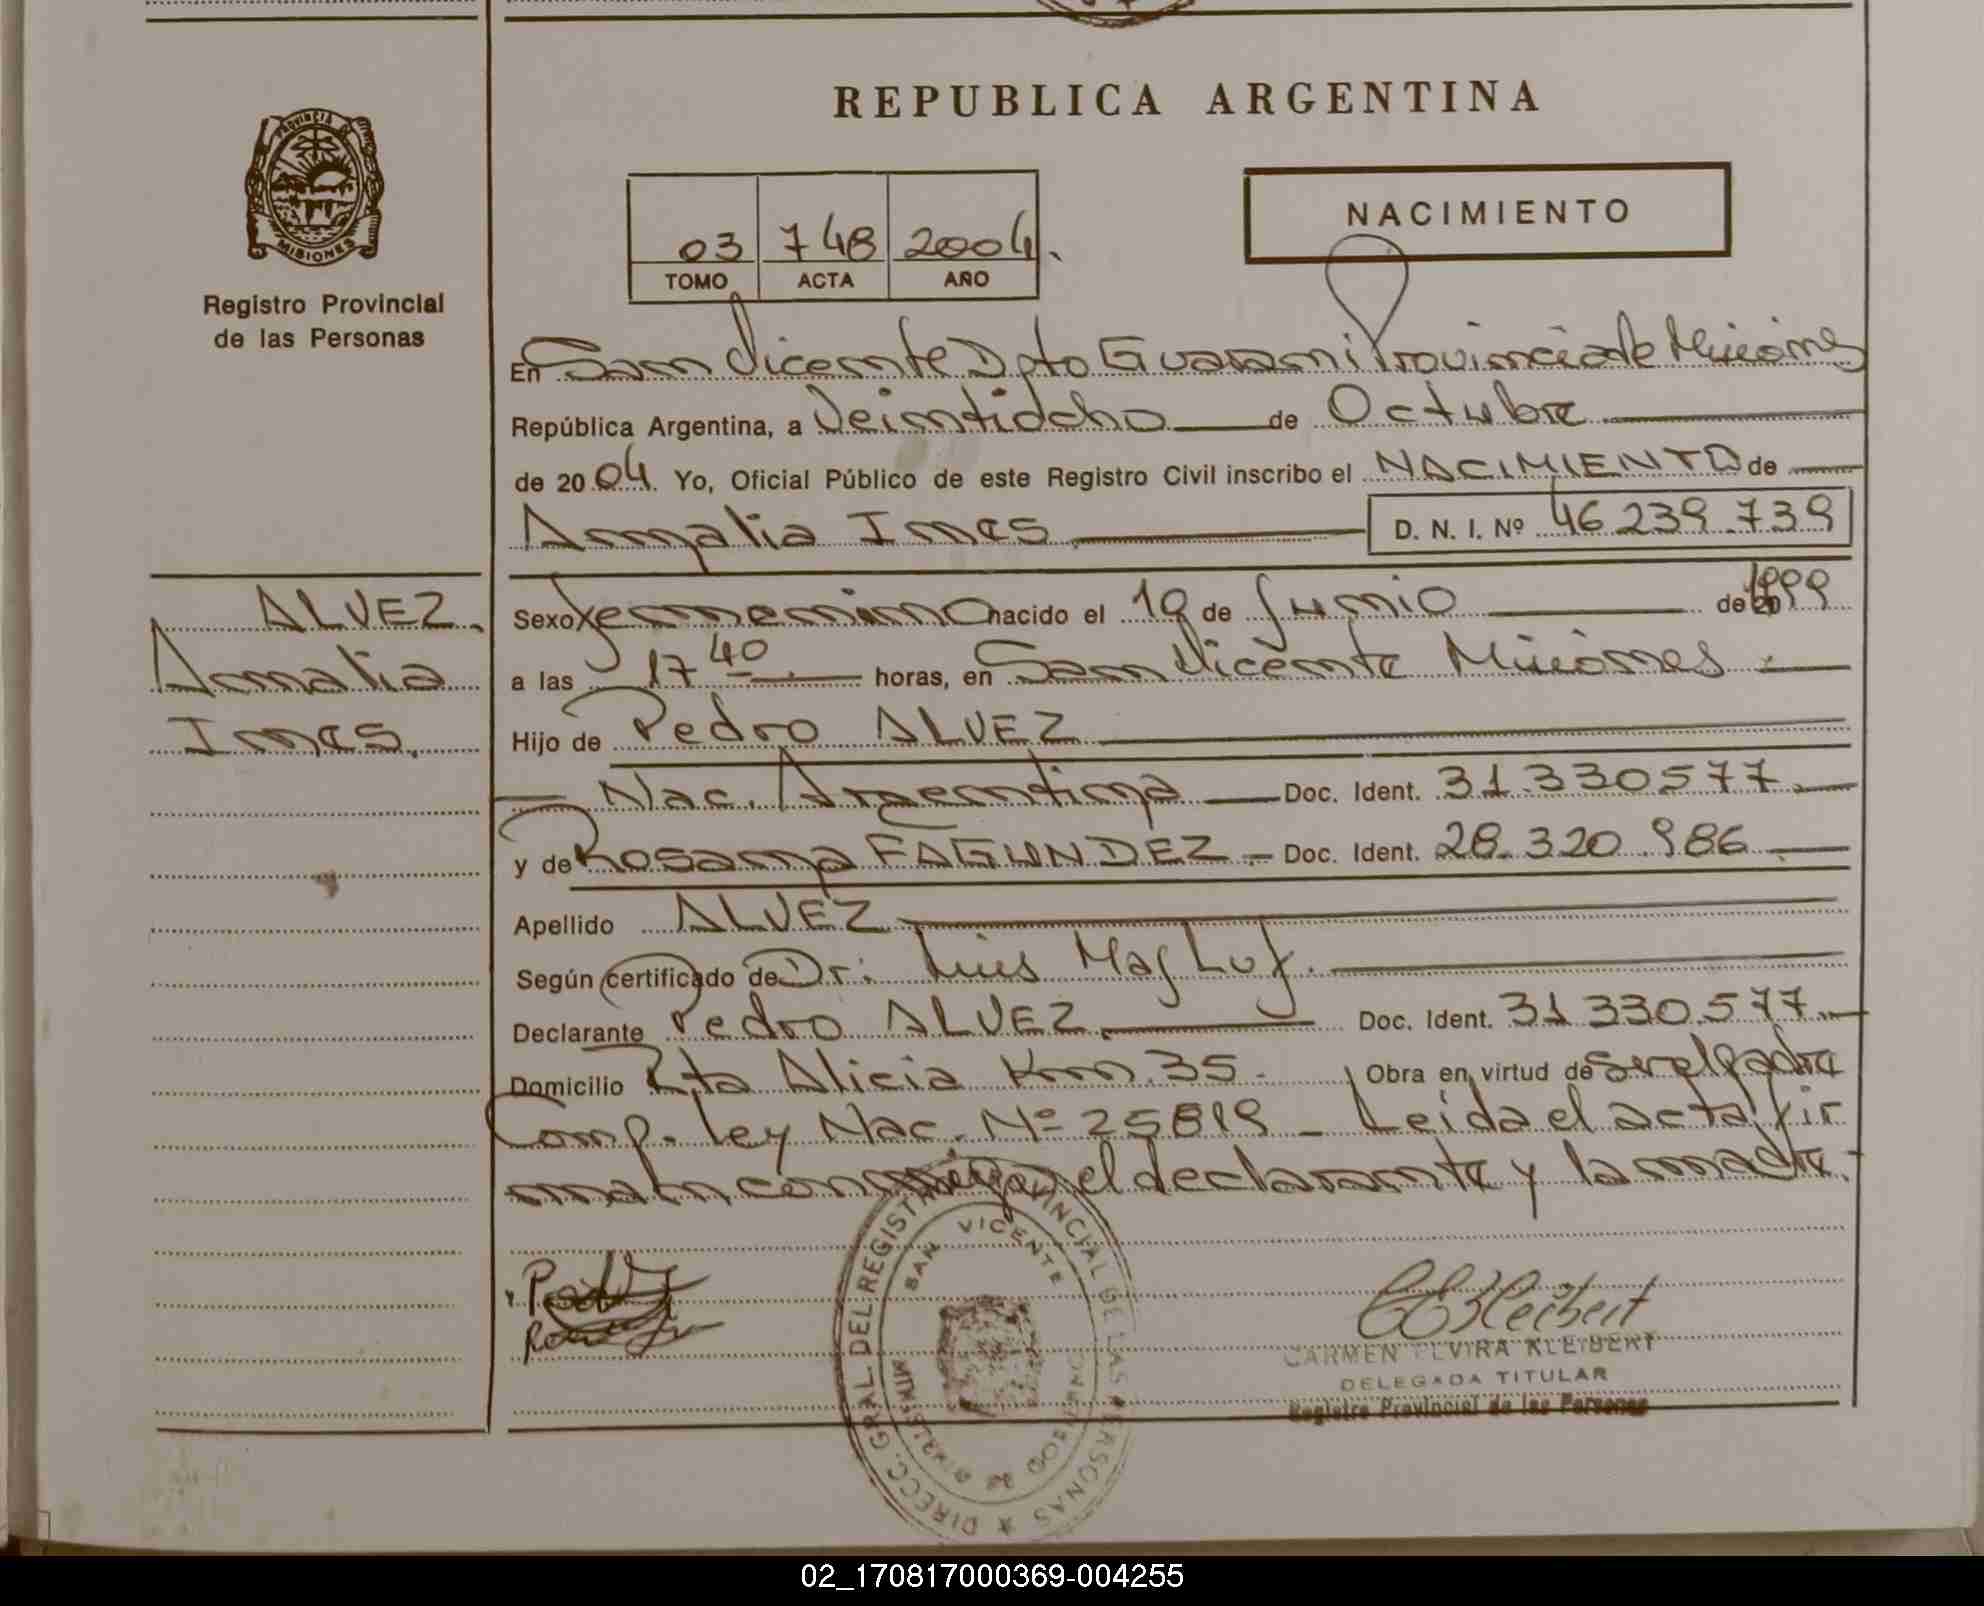 REPUBLICA ARGENTINA
PROVINCIA DE
MISIONES
Registro Provincial
de las Personas
NACIMIENTO
03 748 2004
TOMO ACTA AÑO
En San Vicente Dpto Guarani Provincia de Misiones
República Argentina, a Veintidcho de Octubre
de 2004. Yo, Oficial Público de este Registro Civil inscribo el NACIMIENTO de
Amalia Ines D. N. I. Nº 46.239.739
ALVEZ
Amalia
Ines.
Sexo femenino nacido el 19 de Junio de 1999
a las 17 40 horas, en San Vicente Misiones
Hijo de Pedro ALVEZ
Nac. Argentina Doc. Ident. 31.330577
y de Rosana FAGUNDEZ Doc. Ident. 28.320.986
Apellido ALVEZ
Según certificado de Dr. Luis Masluf.
Declarante Pedro ALVEZ. Doc. Ident. 31330.577
Domicilio Pto Alicia Km.35. Obra en virtud de ser el padre
Comp. Ley Nac. Nº 25819 - Leida el acta fir
man conmigo el declarante y la madre.
DIRECC. GRAL. DEL REGISTRO PROVINCIAL DE LAS PERSONAS
SAN VICENTE
MINISTERIO DE GOBIERNO
CARMEN ELVIRA KLEIBERT
DELEGADA TITULAR
Registro Provincial de las Personas
02_170817000369-004255